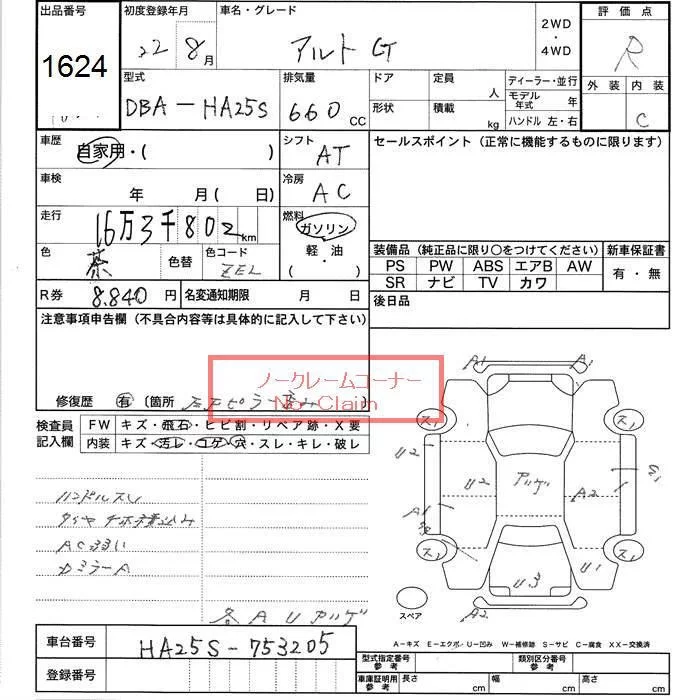 出品番号 初度登録年月 車名・グレード 2WD ・ 4WD 評価点
1624 22 8月 アルト GT R
型式 排気量 ドア 定員 人 ディーラー・並行 外装 内装
DBA-HA25S 660 CC 形状 積載 kg モデル年式 年 C
ハンドル 左・右
車歴 自家用・( ) シフト AT セールスポイント(正常に機能するものに限ります)
車検 年 月(日) 冷房 AC
走行 16万3千802km 燃料 ガソリン
色 茶 色替 色コード ZEL 軽・油 ( ・ )
装備品(純正品に限り○をつけてください) 新車保証書
PS PW ABS エアB AW 有・無
SR ナビ TV カワ
R券 8.840円 名変通知期限 月 日 後日品
注意事項申告欄(不具合内容等は具体的に記入して下さい)
ノークレームコーナー
No Claim
修復歴 有 〔箇所
検査員記入欄 FW キズ・飛石・ヒビ割・リペア跡・X要
内装 キズ・汚レ・コゲ・穴・スレ・キレ・破レ
ハンドルスレ
AC弱い
カミラーA
各AU
A1 A1
ス1 ス1
U2 U2 A2
A1
ス1 ス1
U3 U1
スペア A2
A-キズ E-エクボ U-凹み W-補修跡 S-サビ C-腐食 XX-交換済
車台番号 HA25S-753205
登録番号
型式指定番号 参考 類別区分番号 参考
車庫証明用 参考 長さ cm 幅 cm 高さ cm